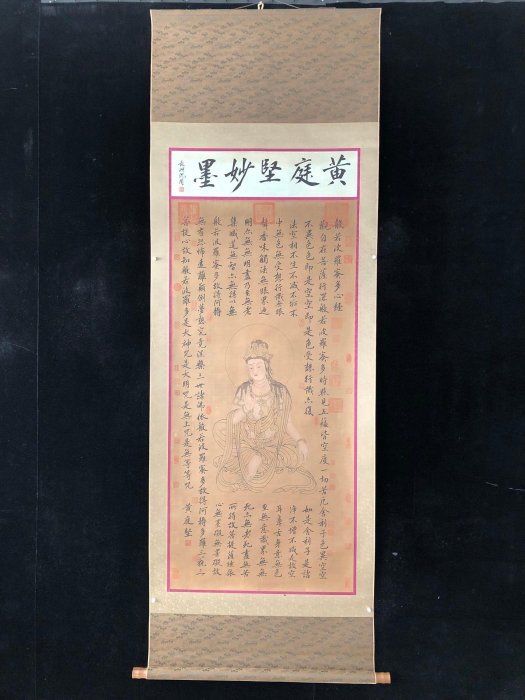 黄庭堅妙墨
長洲沈周
般若波羅蜜多心經
觀自在菩薩行深般若波羅蜜多時照見五蘊皆空度一切苦厄舍利子色異空空
不異色色即是空空即是色受想行識亦復
如是舍利子是諸
法空相不生不滅不垢不
淨不增不減是故空
中無色無受想行識無眼
耳鼻舌身意無色
聲香味觸法無眼界乃
至無意識界無無
明亦無無明盡乃至無老
死亦無老死盡無苦
集滅道無智亦無得以無
所得故菩提薩埵依
般若波羅蜜多故得阿耨
心無罣礙無罣礙故
無有恐怖遠離顛倒夢想究竟涅槃三世諸佛依般若波羅蜜多故得阿耨多羅三藐三
菩提心故知般若波羅多是大神咒是大明咒是無上咒是無等等咒
黃庭堅